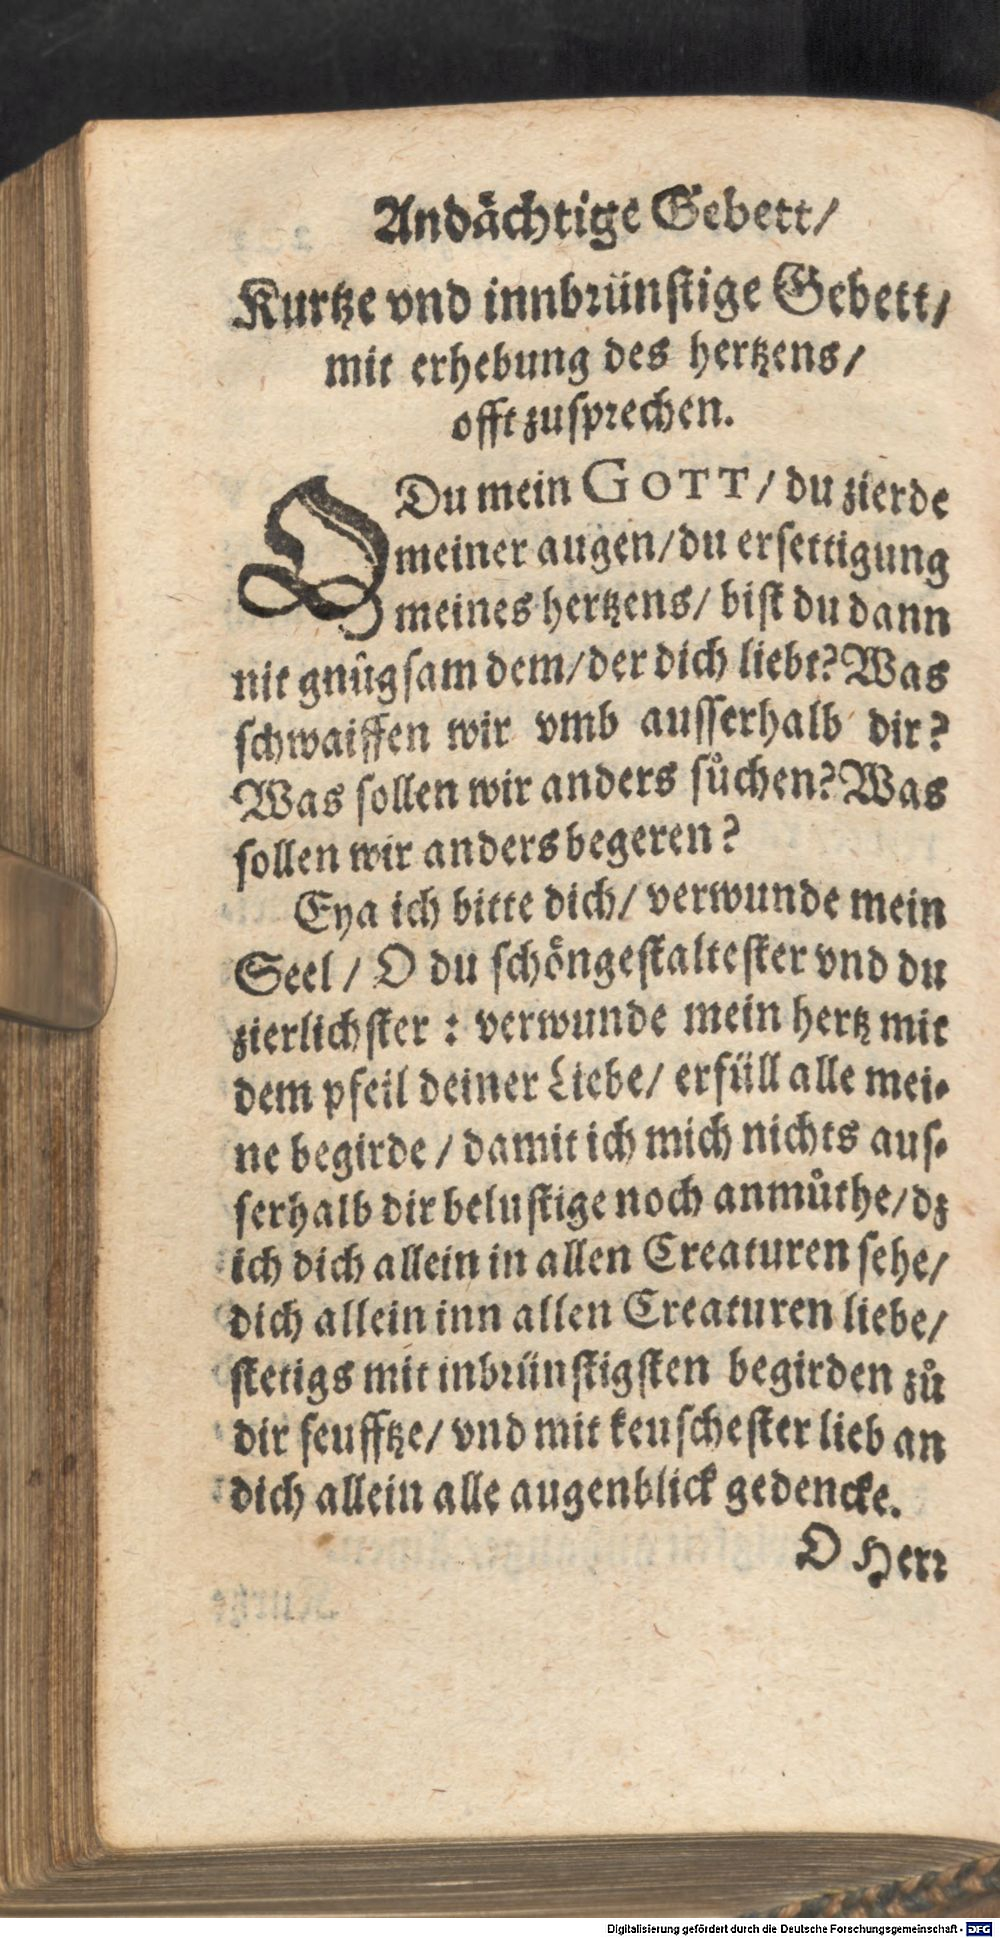 Andächtige Gebett/
Kurtze vnd innbrünstige Gebett/
mit erhebung des hertzens/
offt zusprechen.
O Du mein GOTT/ du zierde
meiner augen/du ersettigung
meines hertzens/ bist du dann
nit gnůgsam dem/der dich liebt? Was
schwaiffen wir vmb ausserhalb dir?
Was sollen wir anders sůchen? Was
sollen wir anders begeren?
Eya ich bitte dich/ verwunde mein
Seel/ O du schöngestaltester vnd du
zierlichster : verwunde mein hertz mit
dem pfeil deiner Liebe/ erfüll alle mei-
ne begirde / damit ich mich nichts aus-
serhalb dir belustige noch anmůthe/dz
ich dich allein in allen Creaturen sehe/
dich allein inn allen Creaturen liebe/
stetigs mit inbrünstigsten begirden zů
dir seufftze/ vnd mit keuschester lieb an
dich allein alle augenblick gedencke.
O Herr
Digitalisierung gefördert durch die Deutsche Forschungsgemeinschaft - DFG